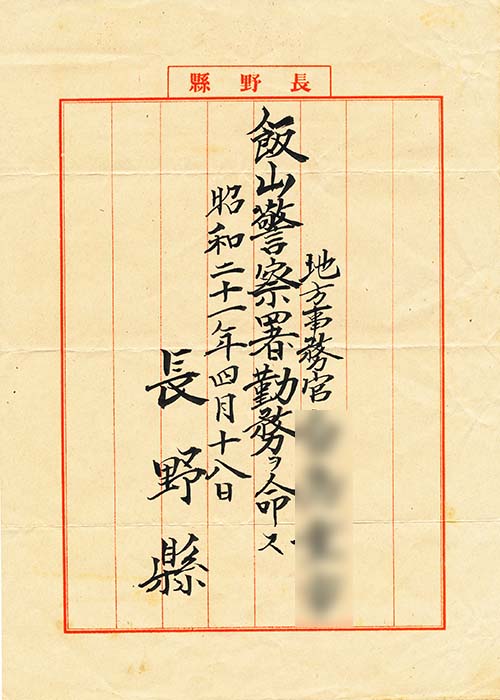 長野縣
地方事務官
飯山警察署勤務ヲ命ス
昭和二十一年四月十八日
長野縣